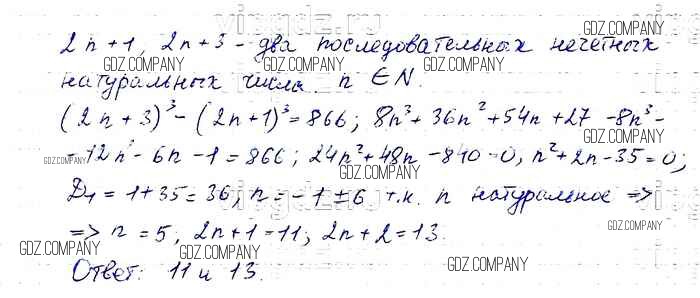 2n+1, 2n+3 - два последовательных нечетных
натуральных числа. n ∈ N.
(2n+3)³ - (2n+1)³ = 866; 8n³ + 36n² + 54n + 27 - 8n³ -
- 12n² - 6n - 1 = 866; 24n² + 48n - 840 = 0, n² + 2n - 35 = 0;
D₁ = 1 + 35 = 36; n = -1 ± 6 т.к. n натуральное =>
=> n = 5; 2n+1 = 11; 2n+2 = 13.
Ответ: 11 и 13.
GDZ.COMPANY
GDZ.COMPANY
GDZ.COMPANY
GDZ.COMPANY
GDZ.COMPANY
GDZ.COMPANY
GDZ.COMPANY
GDZ.COMPANY
GDZ.COMPANY
GDZ.COMPANY
GDZ.COMPANY